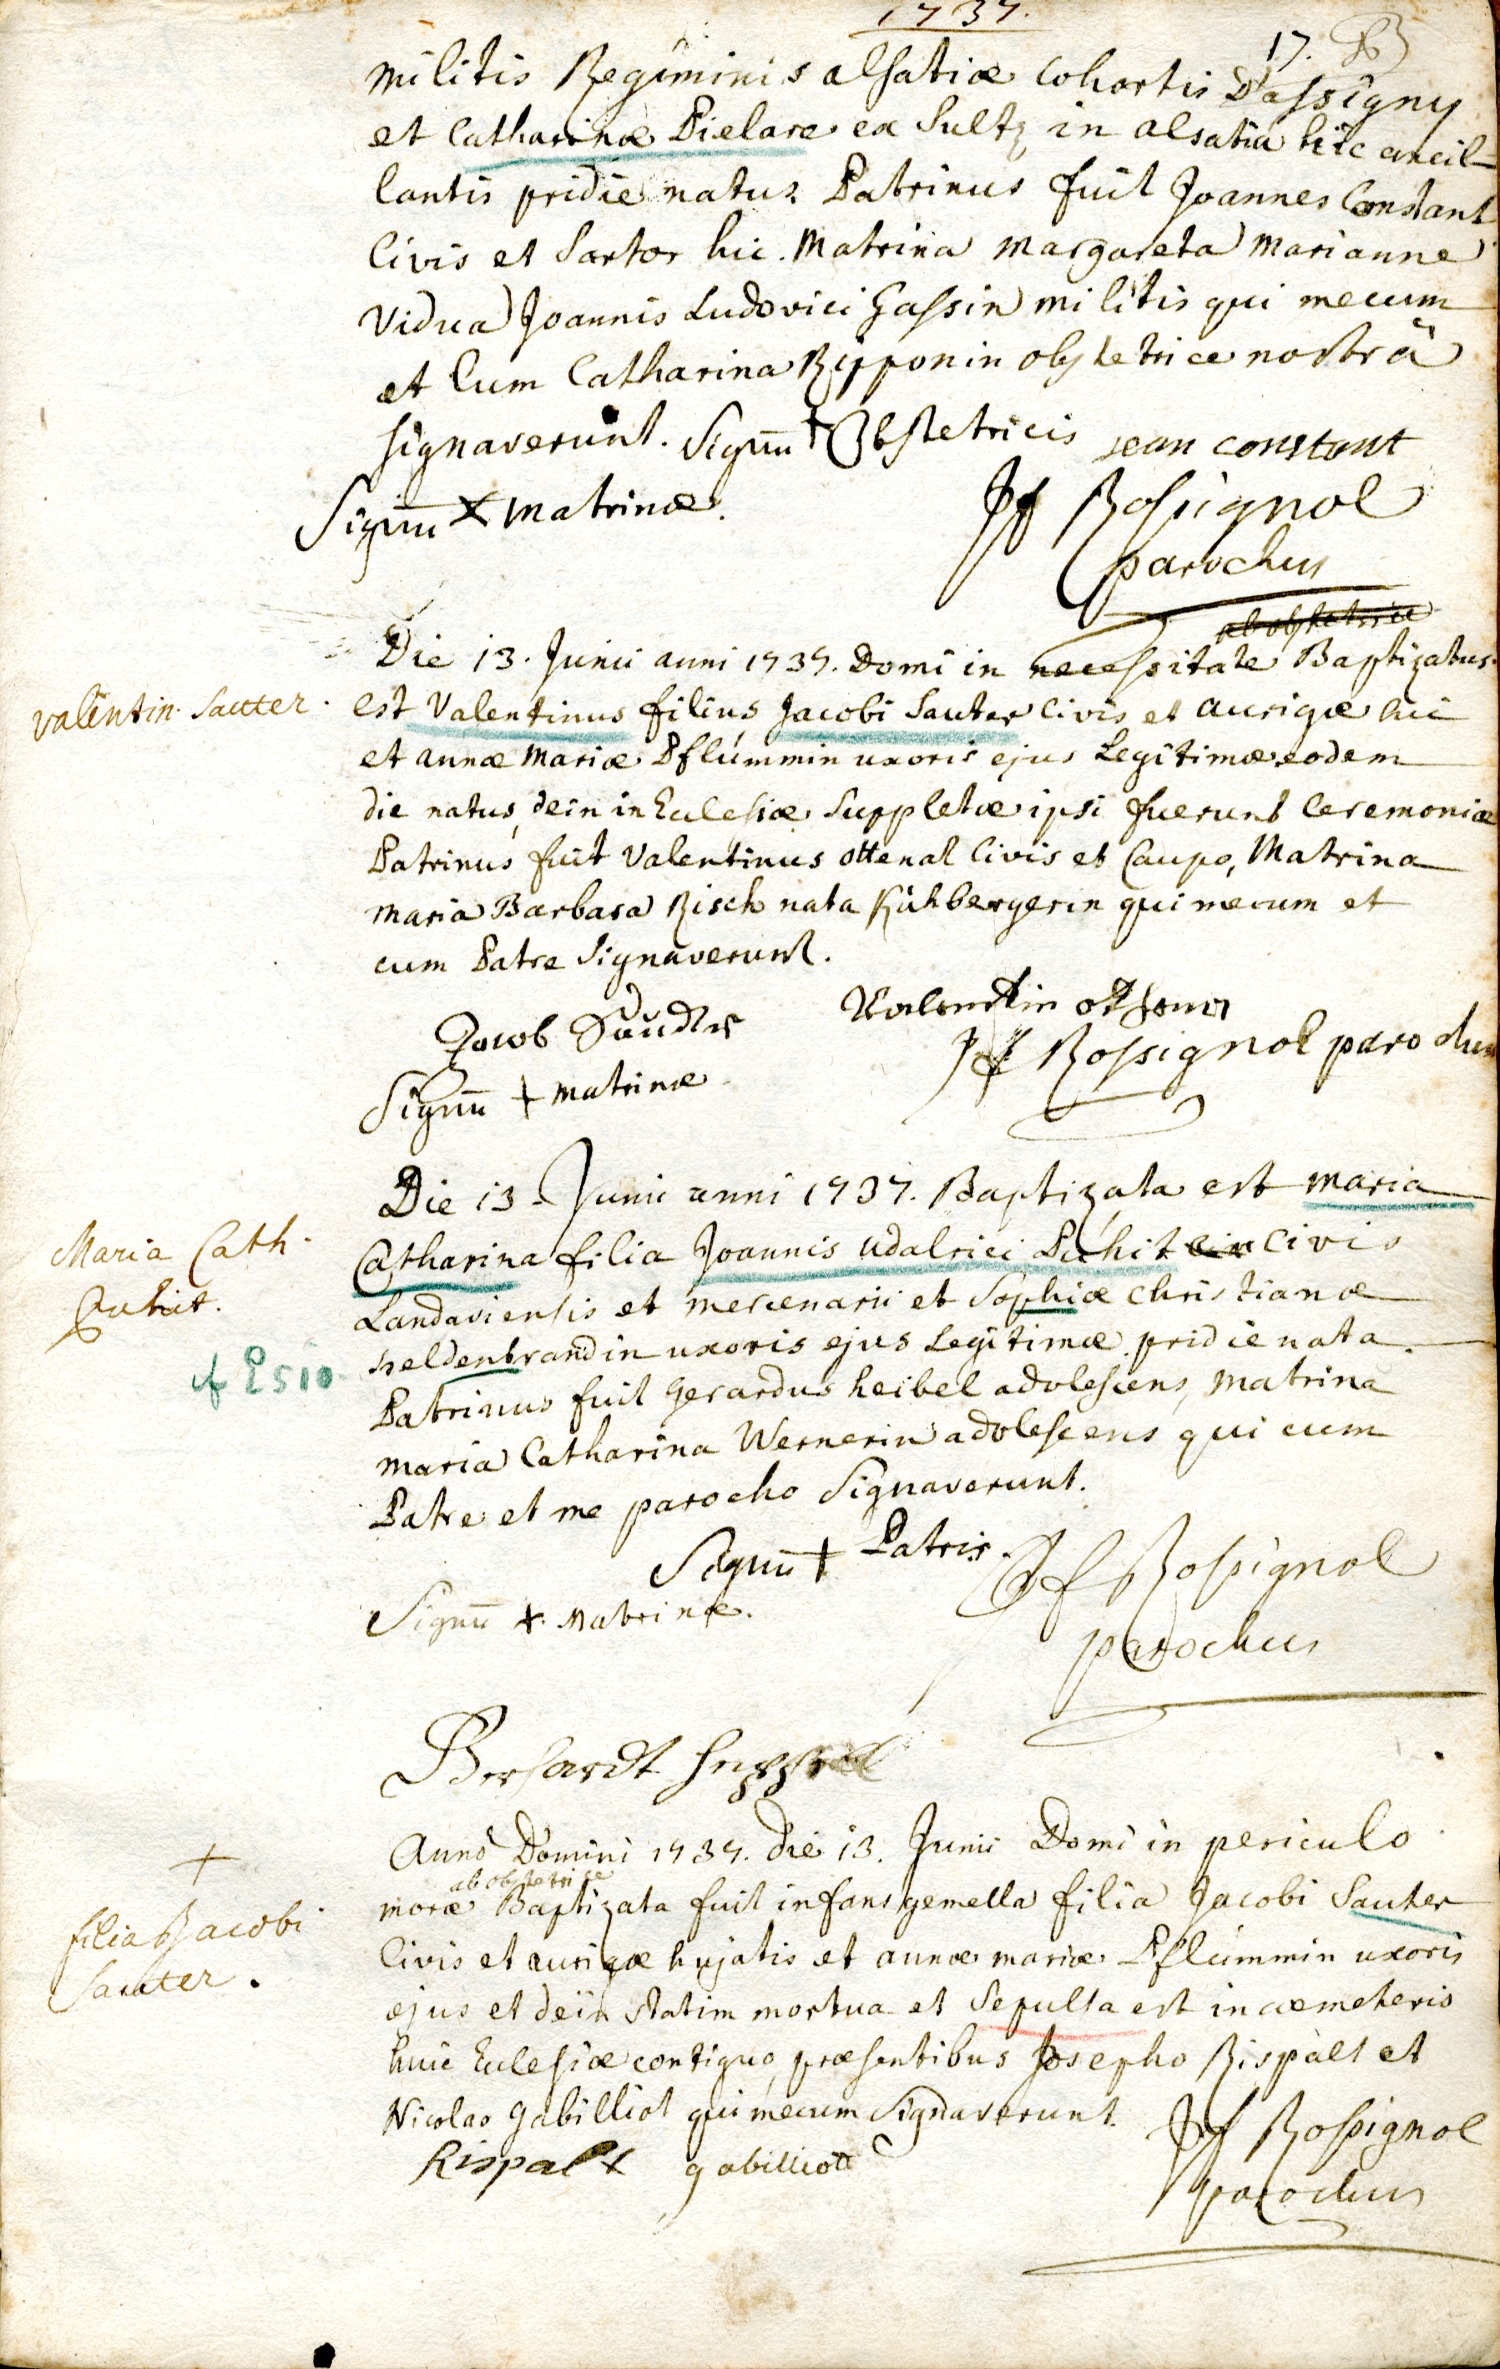 1737.
17.
militis Regiminis alsatiæ Cohortis D'assigny
et Catharinæ Pielare ex Sultz in alsatia hic ancil-
lantis pridie natus Patrinus fuit Joannes Constant
Civis et Sartor hic. Matrina Margareta Marianne
Vidua Joannis Ludovici Gassin militis qui mecum
et Cum Catharina Rypponin obstetrice nostrâ
signaverunt. Signū + Obstetricis jean constant
Signū x matrinæ. Jf Rossignol
parochus
ab obstetrice
Die 13. Junii anni 1737. Domi in necessitate Baptizatus
valentin Sauter.
est Valentinus filius Jacobi Sauter Civis et aurigæ hic
et annæ Mariæ Pflümmin uxoris ejus Legitimæ eodem
die natus, dein in Ecclesiæ Suppletæ ipsi fuerunt Ceremoniæ
Patrinus fuit Valentinus Ottenat Civis et Caupo, Matrina
Maria Barbara Risch nata Kühbergerin qui mecum et
cum Patre Signaverunt.
Jacob Sauder Valentin
Jf Rossignol parochus
Signū + matrinæ
Die 13. Junii anni 1737. Baptizata est Maria
Maria Cath.
Catharina filia Joannis Udalrici Civis
Landaviensis et mercenarii et Sophiæ Christianæ
heldenbrandin uxoris ejus Legitimæ pridie nata.
Patrinus fuit Gerardus heibel adolescens, Matrina
Maria Catharina Wernerin adolescens qui cum
Patre et me parocho Signaverunt.
Signū + Patris. Jf Rossignol
Signū +. Matrinæ.
parochus
Anno Domini 1737. die 13. Junii Domi in periculo
+
ab obstetrice
moræ Baptizata fuit infans gemella filia Jacobi Sauter
filia Jacobi
Sauter.
Civis et aurigæ hujatis et annæ mariæ Pflümmin uxoris
ejus et dein statim mortua et Sepulta est in cæmeterio
huic Ecclesiæ contiguo, præsentibus Josepho Rispalt et
Nicolao Gabilliot qui mecum Signaverunt.
Jf Rossignol
Rispalt gabilliott
parochus